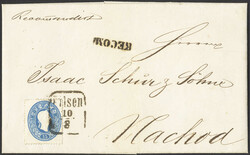 Recommandirt
RECOM.
Herren
Isaac Schürz Söhne
Pilsen
10
8
Nachod